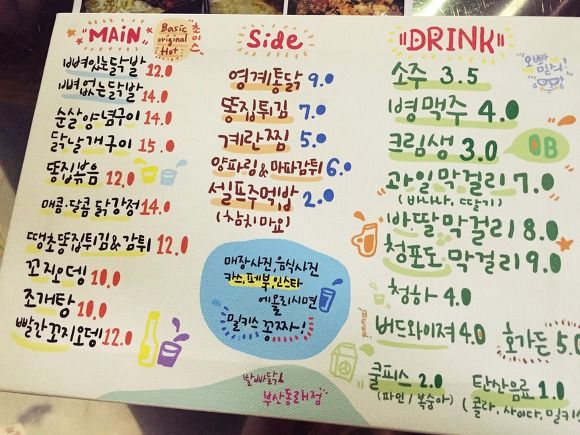 MAIN
Basic
original
Hot
초이스
뼈있는닭발 12.0
뼈없는닭발 14.0
순살양념구이 14.0
닭날개구이 15.0
똥집볶음 12.0
매콤·달콤 닭강정 14.0
땡초똥집튀김&감튀 12.0
꼬지오뎅 10.0
조개탕 10.0
빨간꼬지오뎅 12.0
Side
영계통닭 9.0
똥집튀김 7.0
계란찜 5.0
양파링&마파감튀 6.0
셀프주먹밥 2.0
(참치마요)
매장사진, 음식사진
카스, 페북, 인스타
에 올리시면
밀키스 꽁짜!
발빠닭&
부산동래점
DRINK
오빠
달려
소주 3.5
병맥주 4.0
크림생 3.0
과일막걸리 7.0
(바나나, 딸기)
바딸막걸리 8.0
청포도 막걸리 9.0
청하 4.0
Beer
버드와이져 4.0 호가든 5.0
쿨피스 2.0 탄산음료 1.0
(파인/복숭아) (콜라, 사이다, 밀키스